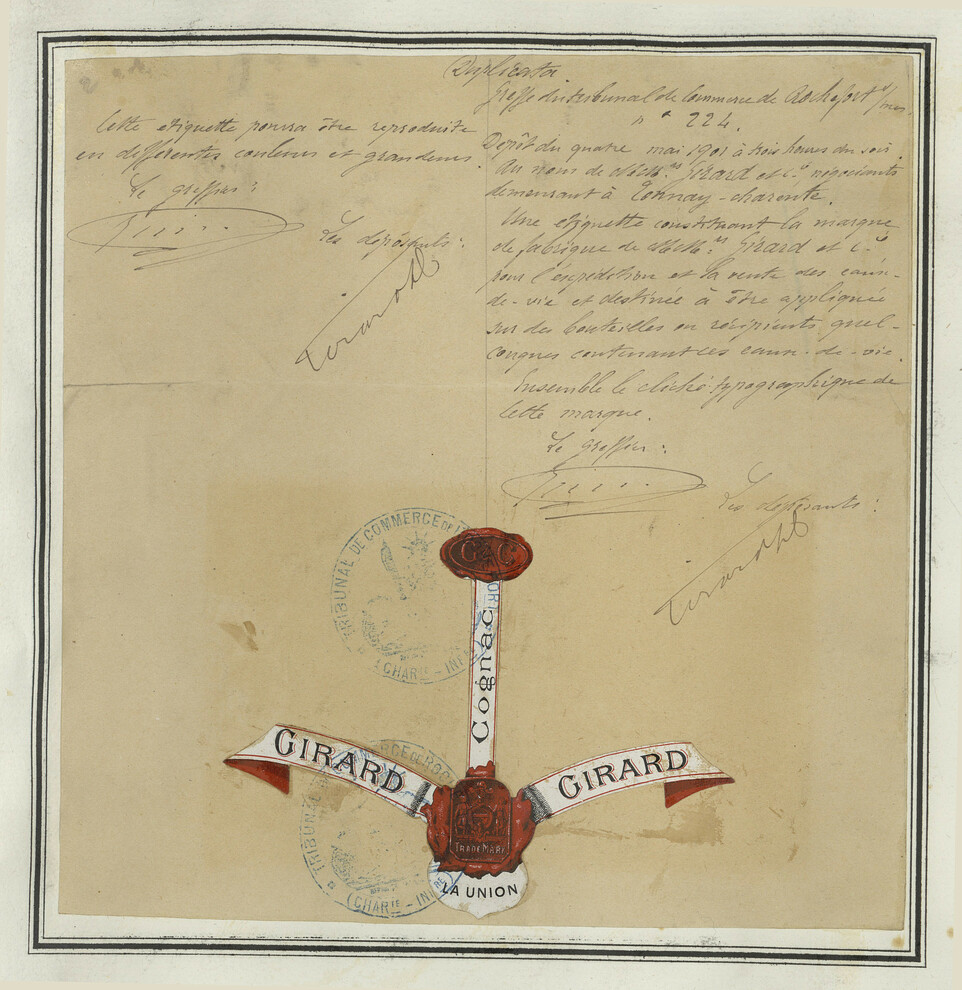 Duplicata
Greffe du tribunal de Commerce de Rochefort s/mer
n° 224.
Dépôt du quatre mai 1901 à trois heures du soir.
Au nom de MM.rs Girard et Cie négociants
demeurant à Tonnay-charente.
Une étiquette constituant la marque
de fabrique de MM.rs Girard et Cie
pour l'expédition et la vente des eaux-
de-vie et destinée à être appliquée
sur des bouteilles ou récipients quel-
conques contenant ces eaux-de-vie.
Ensemble le cliché typographique de
cette marque.
Le greffier:
Les déposants:
Girard
Cette étiquette pourra être reproduite
en différentes couleurs et grandeurs
Le greffier:
Les déposants:
Girard
TRIBUNAL DE COMMERCE DE
(CHARIE - INF
G & C
Cognac
GIRARD
GIRARD
TRIBUNAL COMMERCE DE ROC
(CHARIE - IN
TRADE MARK
LA UNION